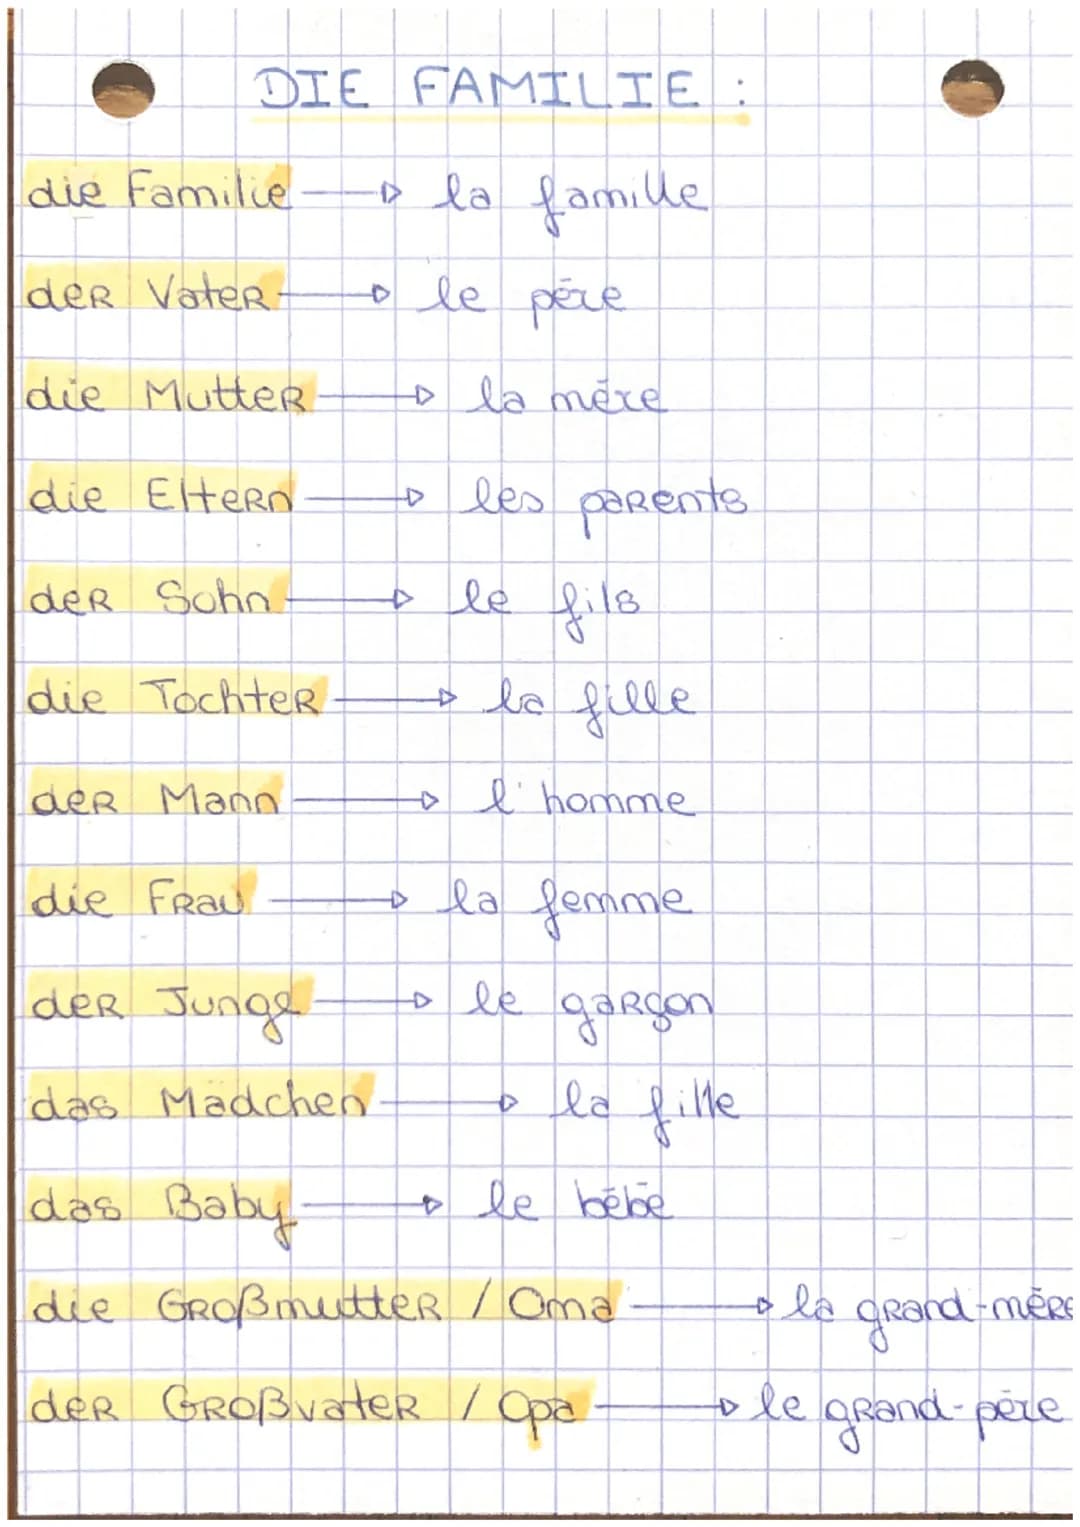 DIE FAMILIE :
die Familie → la famille
der Vater → le père
die Mutter → la mère
die Eltern → les parents
der Sohn → le fils
die Tochter → la fille
der Mann → l'homme
die Frau → la femme
der Junge → le garçon
das Mädchen → la fille
das Baby → le bébé
die Großmutter / Oma → la grand-mère
der Großvater / Opa → le grand-père